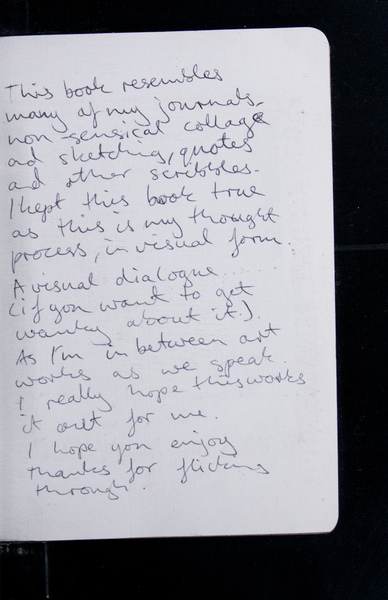 This book resembles
many of my journals.
non-sensical collage
and sketching, quotes
and other scribbles.
I kept this book true
as this is my thought
process, in visual form.
A visual dialogue.....
(if you want to get
wanky about it.).
As I'm in between art
works as we speak.
I really hope this works
it out for me.
I hope you enjoy
thanks for flicking
through.